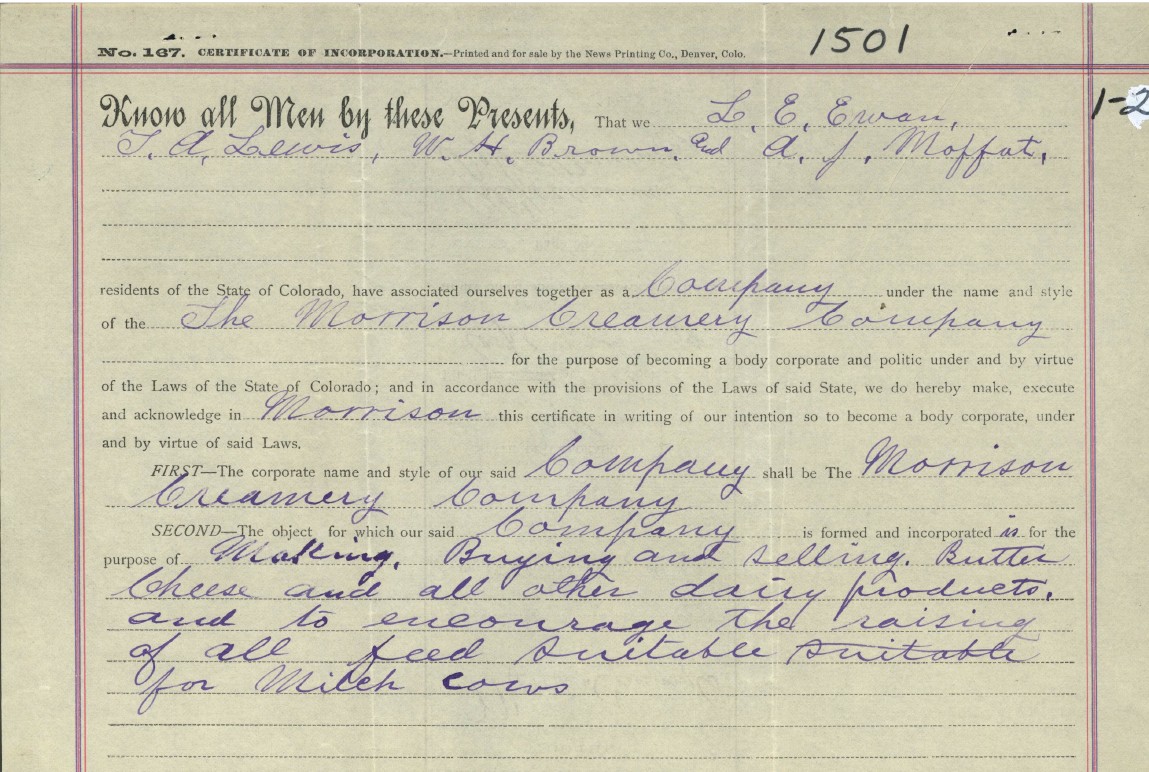 No. 167. CERTIFICATE OF INCORPORATION.—Printed and for sale by the News Printing Co., Denver, Colo.
1501
1-2
Know all Men by these Presents, That we L. E. Ewan,
T. A. Lewis, W. H. Brown, and A. J. Moffat,
residents of the State of Colorado, have associated ourselves together as a Company under the name and style
of the The Morrison Creamery Company
for the purpose of becoming a body corporate and politic under and by virtue
of the Laws of the State of Colorado; and in accordance with the provisions of the Laws of said State, we do hereby make, execute
and acknowledge in Morrison this certificate in writing of our intention so to become a body corporate, under
and by virtue of said Laws.
FIRST—The corporate name and style of our said Company shall be The Morrison
Creamery Company
SECOND—The object for which our said Company is formed and incorporated is for the
purpose of Making, Buying and selling. Butter
Cheese and all other dairy products,
and to encourage the raising
of all feed suitable suitable
for Milch cows